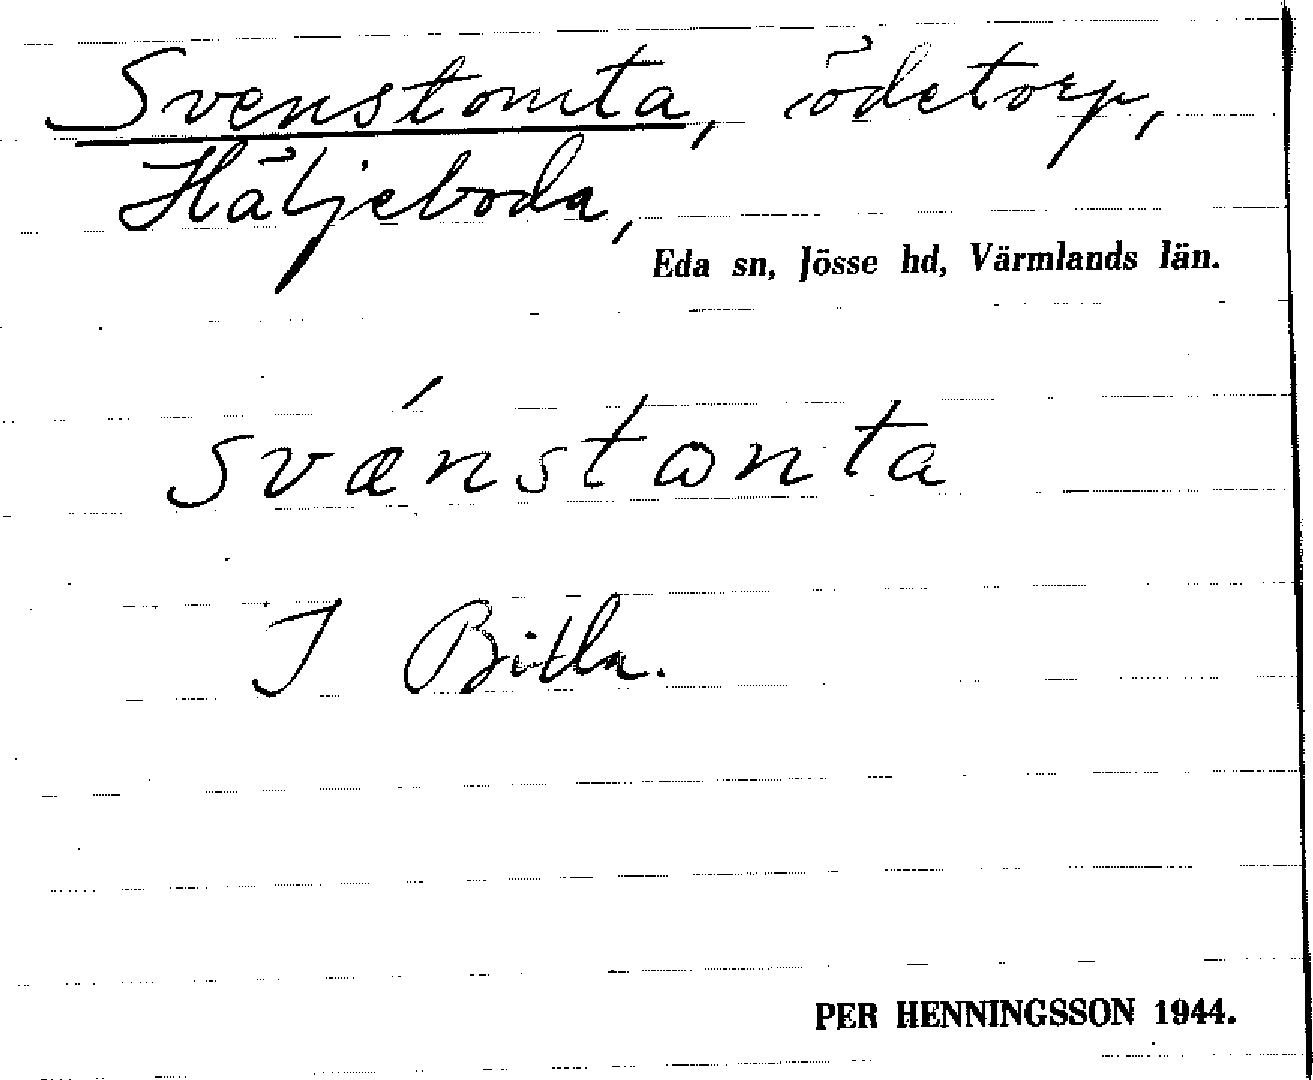 Svenstomta, ödetorp,
Häljeboda,
Eda sn, Jösse hd, Värmlands län.
svænstωnta
I Bitla.
PER HENNINGSSON 1944.